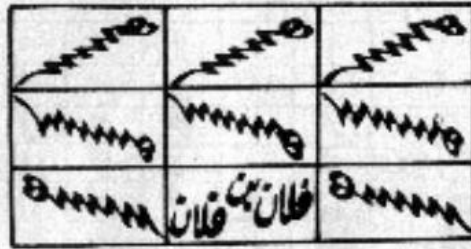 فلان بن فلان